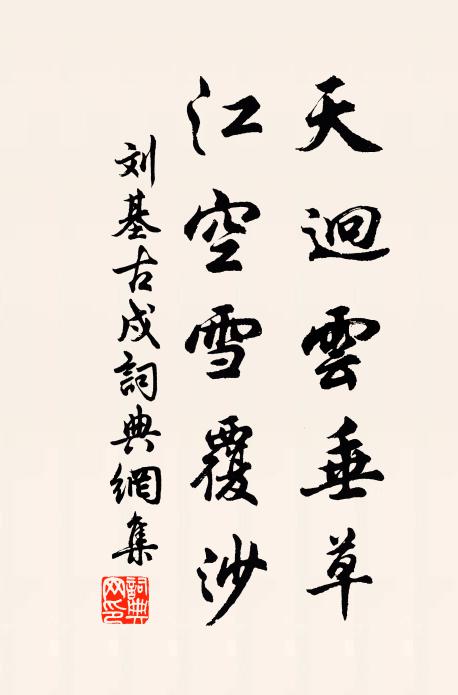 天迥雲垂草
江空雪覆沙
刘基古戍詞典網集
詞典
网印